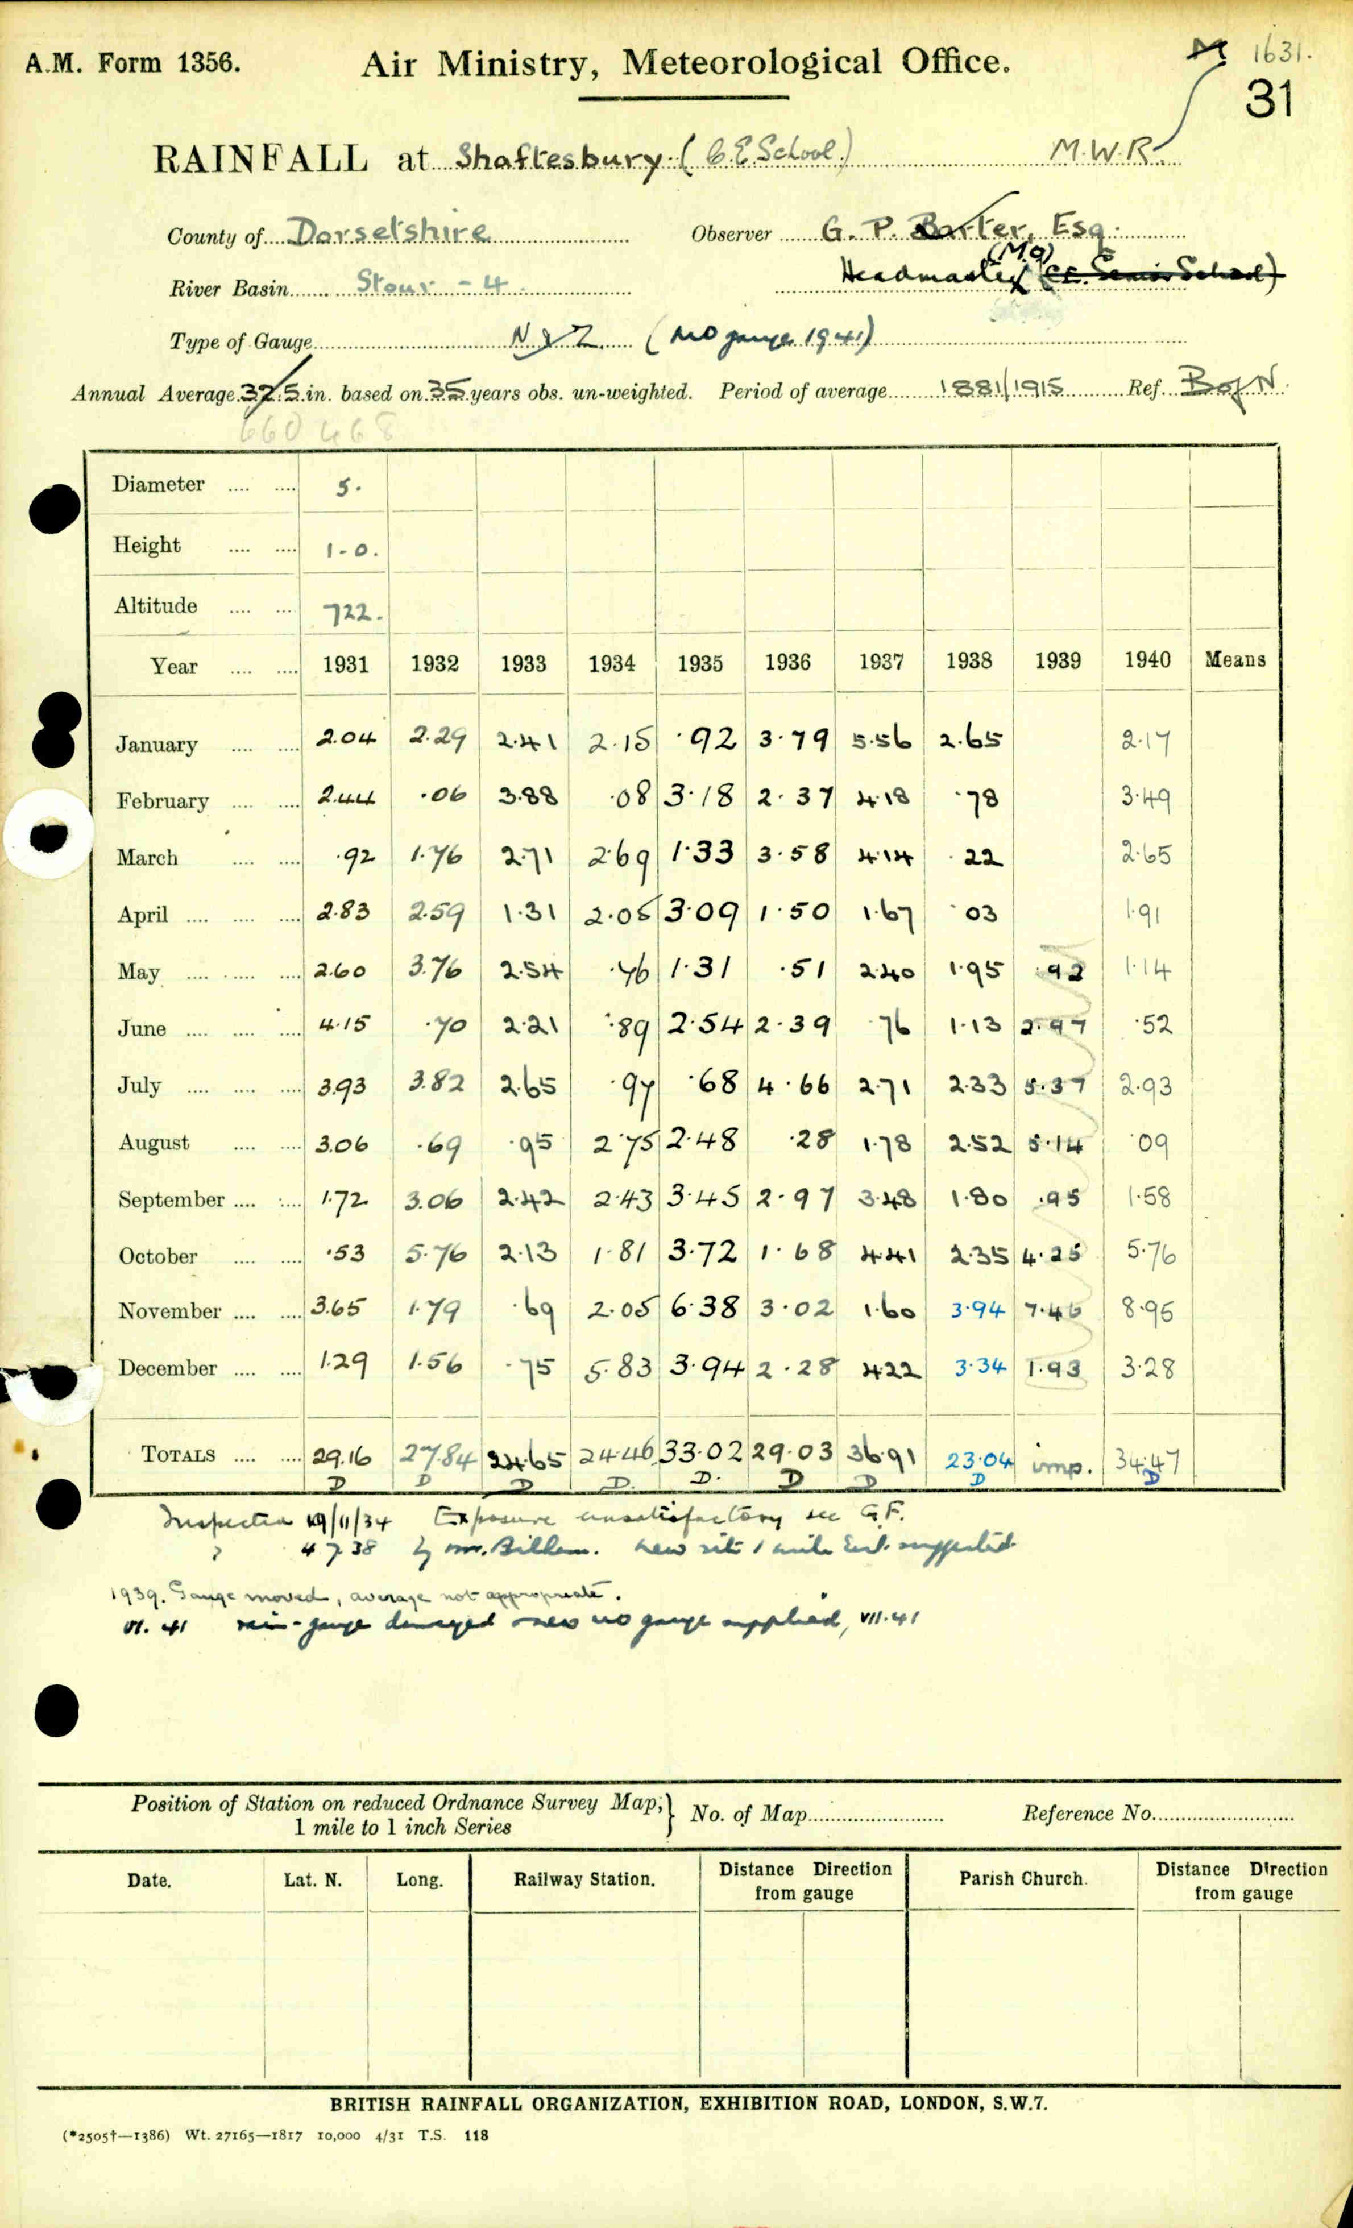 A.M. Form 1356. Air Ministry, Meteorological Office. 1631.
31
RAINFALL at Shaftesbury (C.E School.) M.W.R.
County of Dorsetshire Observer G. P. Barter, Esq.
Headmaster (C.E. Senior School)
River Basin Stour - 4
Type of Gauge (MO gauge 1941)
Annual Average 32.5 in. based on 35 years obs. un-weighted. Period of average 1881/1915 Ref. B of N.
660 468
Diameter .... .... 5.
Height .... .... 1-0.
Altitude .... .... 722.
Year .... .... 1931 1932 1933 1934 1935 1936 1937 1938 1939 1940 Means
January .... .... 2.04 2.29 2.41 2.15 .92 3.79 5.56 2.65 2.17
February .... .... 2.44 .06 3.88 .08 3.18 2.37 4.18 .78 3.49
March .... .... .92 1.76 2.71 2.69 1.33 3.58 4.14 .22 2.65
April .... .... .... 2.83 2.59 1.31 2.05 3.09 1.50 1.67 .03 1.91
May .... .... .... 2.60 3.76 2.54 .76 1.31 .51 2.40 1.95 .92 1.14
June .... .... .... 4.15 .70 2.21 .89 2.54 2.39 .76 1.13 2.97 .52
July .... .... .... 3.93 3.82 2.65 .97 .68 4.66 2.71 2.33 5.37 2.93
August .... .... 3.06 .69 .95 2.75 2.48 .28 1.78 2.52 5.14 .09
September .... .... 1.72 3.06 2.42 2.43 3.45 2.97 3.48 1.80 .95 1.58
October .... .... .53 5.76 2.13 1.81 3.72 1.68 4.41 2.35 4.25 5.76
November .... .... 3.65 1.79 .69 2.05 6.38 3.02 1.60 3.94 7.46 8.95
December .... .... 1.29 1.56 .75 5.83 3.94 2.28 4.22 3.34 1.93 3.28
TOTALS .... .... 29.16 27.84 24.65 24.46 33.02 29.03 36.91 23.04 imp. 34.47
D D D D. D. D D D D
Inspected 19/11/34 Exposure unsatisfactory see G.F.
" 4 7 38 by Mr. Bilham. New site 1 mile East suggested
1939. Gauge moved, average not appropriate.
VI. 41 rain-gauge damaged new MO gauge supplied, VII.41
Position of Station on reduced Ordnance Survey Map; No. of Map Reference No.
1 mile to 1 inch Series
Date. Lat. N. Long. Railway Station. Distance Direction from gauge Parish Church. Distance Direction from gauge
BRITISH RAINFALL ORGANIZATION, EXHIBITION ROAD, LONDON, S.W.7.
(*2505†—1386) Wt. 27165—1817 10,000 4/31 T.S. 118